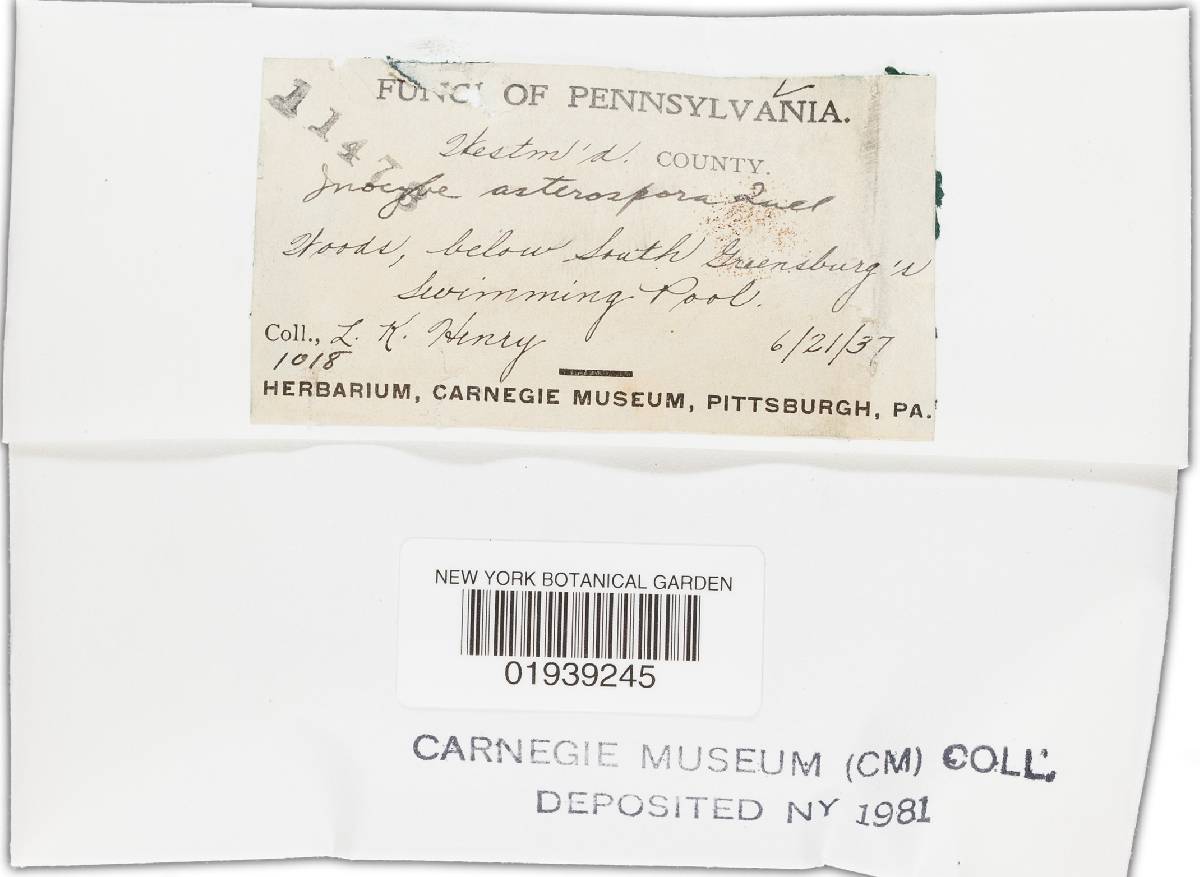 FUNGI OF PENNSYLVANIA.
Westm'd. COUNTY.
Inocybe asterospora Quel
Woods, below South Greensburg's
Swimming Pool.
Coll., L. K. Henry 6/21/37
1018
HERBARIUM, CARNEGIE MUSEUM, PITTSBURGH, PA.
NEW YORK BOTANICAL GARDEN
01939245
CARNEGIE MUSEUM (CM) COLL.
DEPOSITED NY 1981